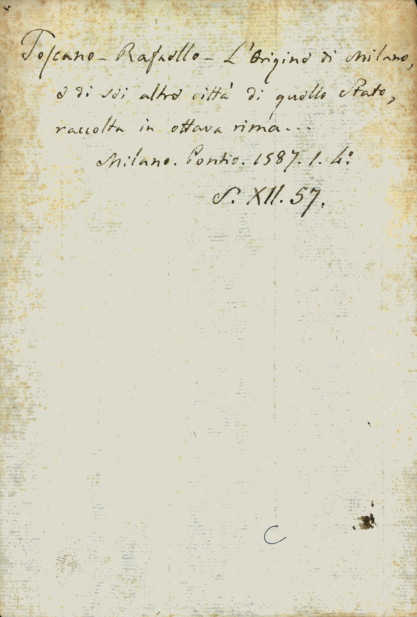 Toscano - Rafaello - L'Origine di Milano,
e di sei altre città di quello Stato,
raccolta in ottava rima...
Milano. Pontio. 1587. 1. 4º
S. XII. 57.
C